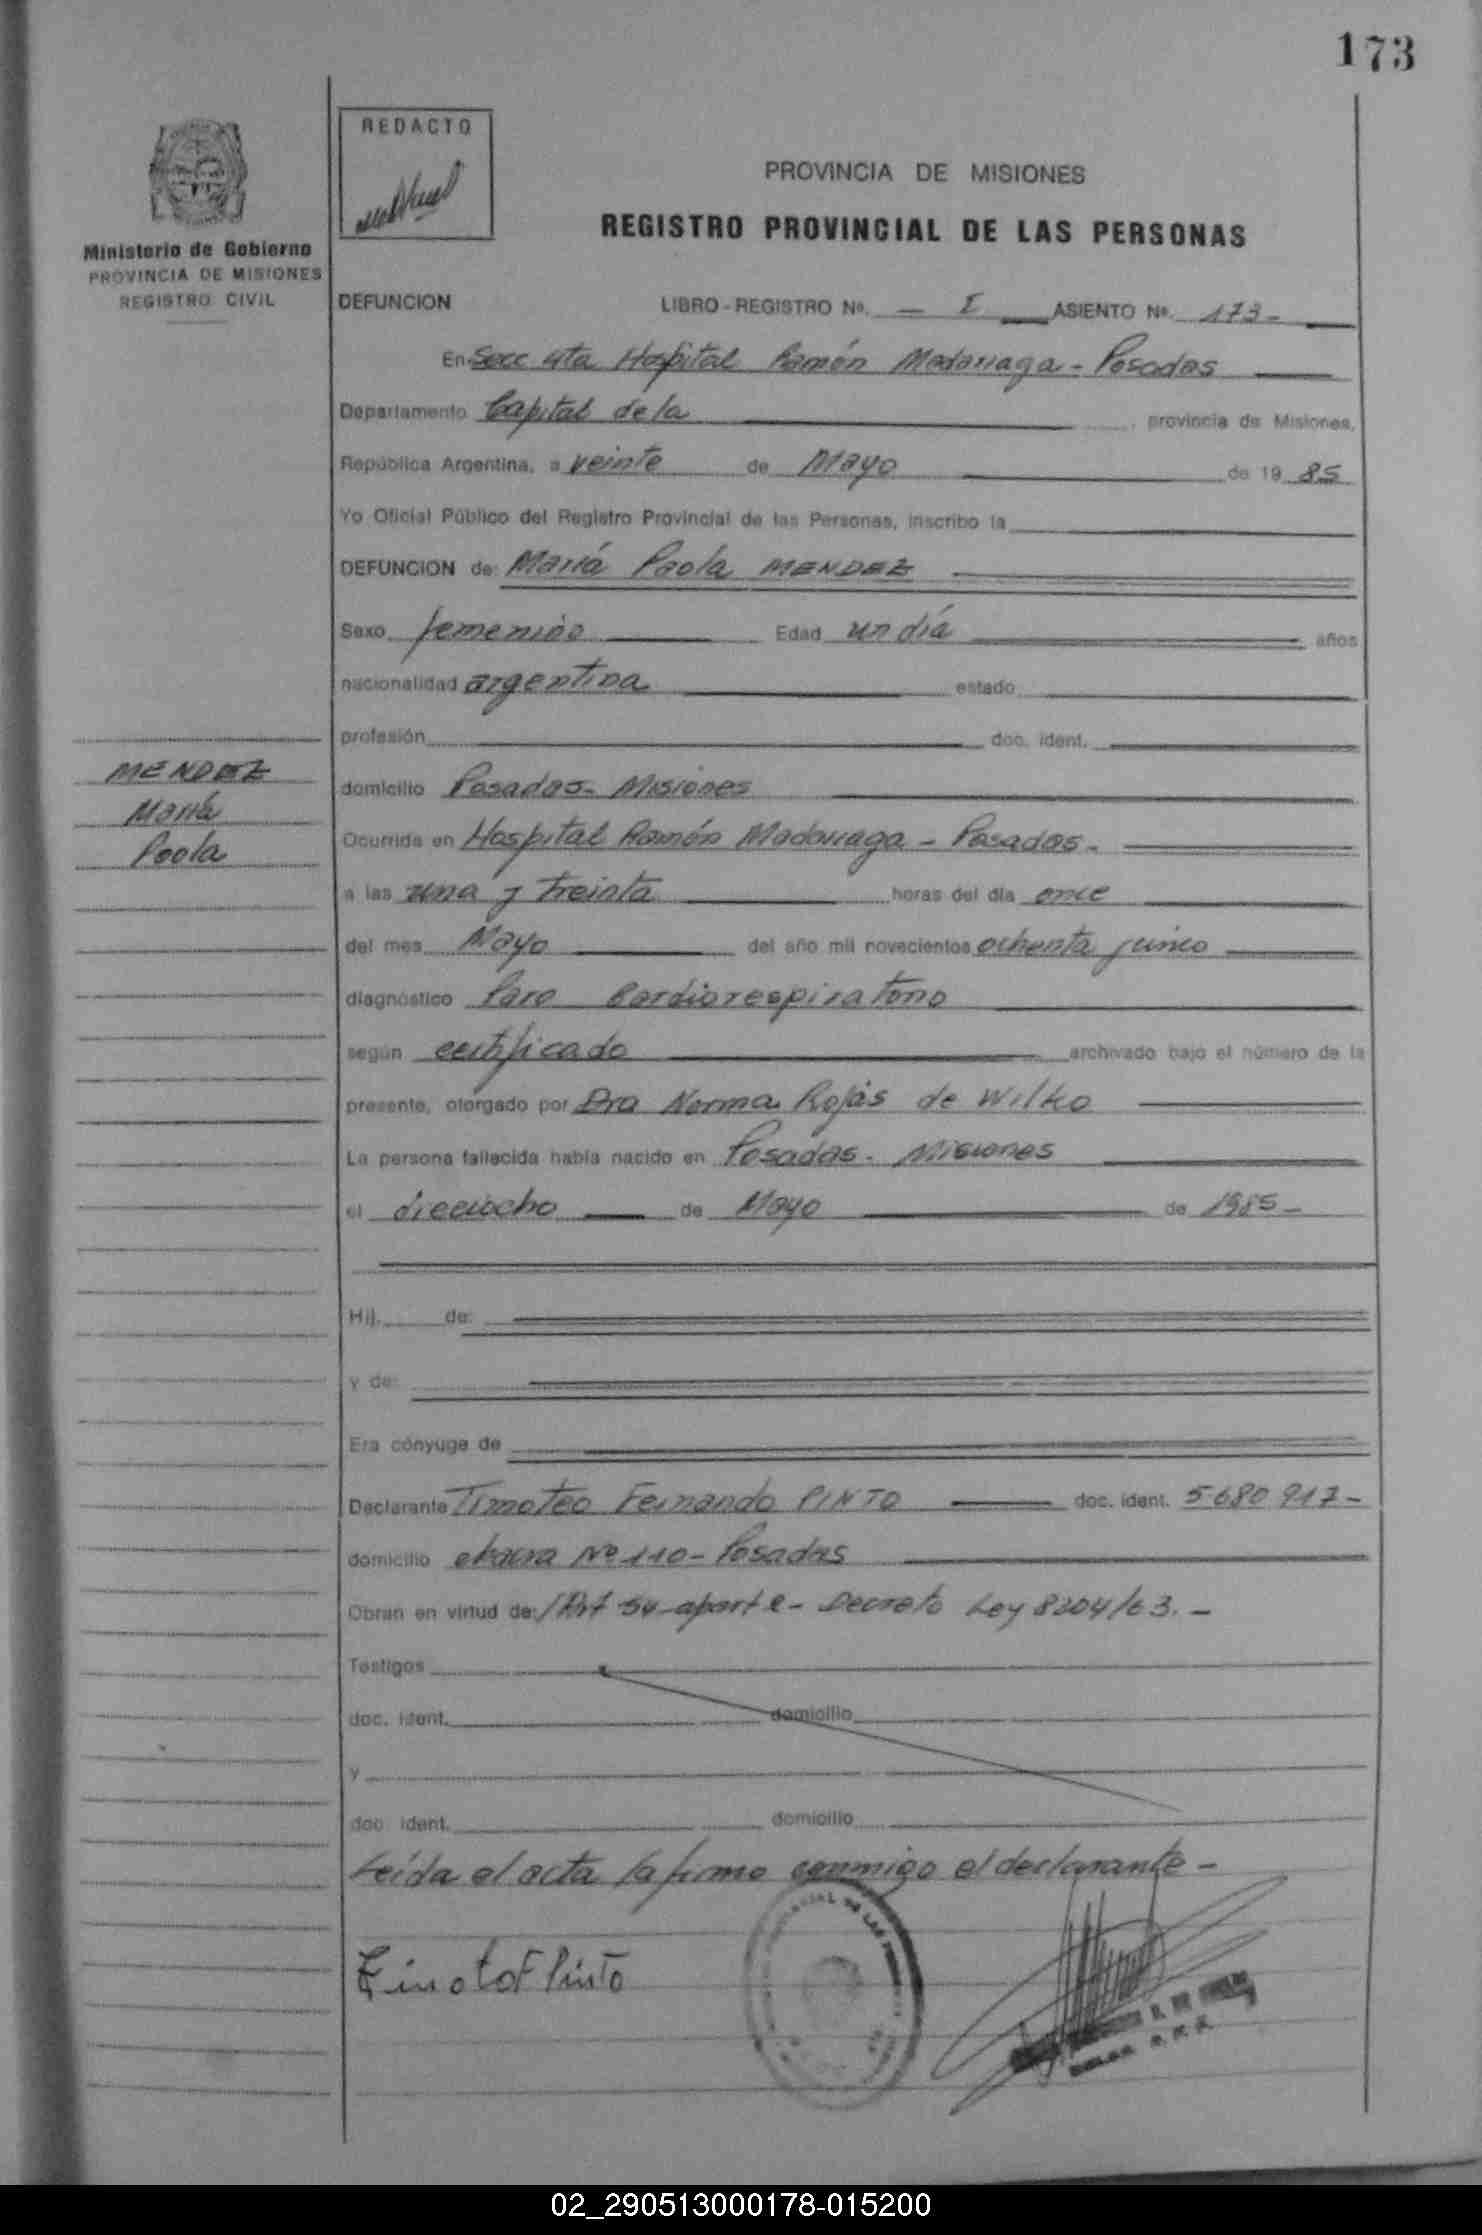 173
REDACTO
PROVINCIA DE MISIONES
REGISTRO PROVINCIAL DE LAS PERSONAS
Ministerio de Gobierno
PROVINCIA DE MISIONES
REGISTRO CIVIL
DEFUNCION LIBRO - REGISTRO Nº. - I ASIENTO Nº. 173-
En Secc 4ta Hospital Ramón Madariaga - Posadas
Departamento Capital de la provincia de Misiones,
República Argentina, a veinte de Mayo de 19 85
Yo Oficial Público del Registro Provincial de las Personas, inscribo la
DEFUNCION de: María Paola MENDEZ
Sexo femenino Edad un día años
nacionalidad argentina estado
profesión doc. ident.
MENDEZ
María
Paola
domicilio Posadas- Misiones
Ocurrida en Hospital Ramón Madariaga - Posadas-
a las una y treinta horas del día once
del mes Mayo del año mil novecientos ochenta y cinco
diagnóstico Paro Cardiorespiratorio
según certificado archivado bajo el número de la
presente, otorgado por Dra Norma Rojas de Wilko
La persona fallecida había nacido en Posadas- Misiones
el dieciocho de Mayo de 1985-
Hij. de:
y de:
Era cónyuge de
Declarante Timoteo Fernando PINTO doc. ident. 5680 917-
domicilio chacra Nº 110- Posadas
Obran en virtud de: Art 54 apart e- Decreto Ley 8204/63.-
Testigos
doc. ident. domicilio
y
doc. ident. domicilio
Leída el acta la firma conmigo el declarante-
Pinto